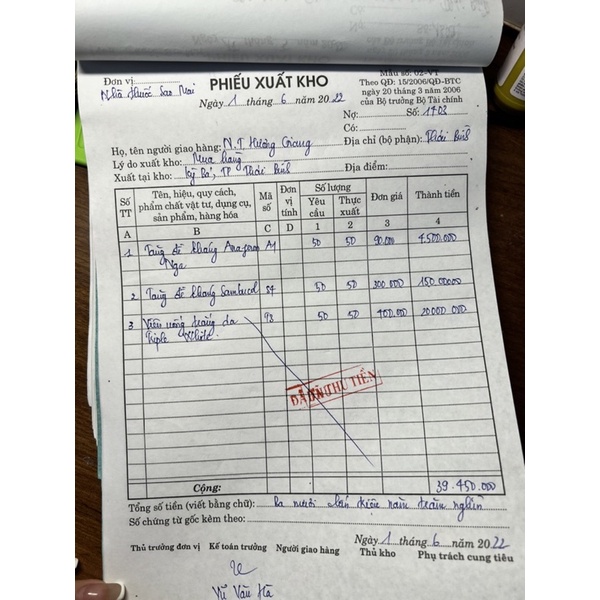 Đơn vị: Nhà thuốc Sao Mai
PHIẾU XUẤT KHO
Ngày 1 tháng 6 năm 2022
Mẫu số: 02-VT
Theo QĐ: 15/2006/QĐ-BTC
ngày 20 tháng 3 năm 2006
của Bộ trưởng Bộ Tài chính
Nợ: Số: 1403
Có:
Họ, tên người giao hàng: N.T Hương Giang Địa chỉ (bộ phận): Thái Bình
Lý do xuất kho: Mua hàng
Xuất tại kho: Kỳ Bá, TP Thái Bình Địa điểm:
Số TT Tên, hiệu, quy cách, phẩm chất vật tư, dụng cụ, sản phẩm, hàng hóa Mã số Đơn vị tính Số lượng Yêu cầu Thực xuất Đơn giá Thành tiền
A B C D 1 2 3 4
1 Tăng đề kháng Nga A1 50 50 90.000 4.500.000
2 Tăng đề kháng Sambucol 84 50 50 300.000 150.00000
3 Viên uống trắng da Triple White 98 50 50 400.000 20000 000
ĐÃ THU TIỀN
Cộng: 39.450.000
Tổng số tiền (viết bằng chữ): Ba mươi chín triệu năm trăm nghìn
Số chứng từ gốc kèm theo:
Ngày 1 tháng 6 năm 2022
Thủ trưởng đơn vị Kế toán trưởng Người giao hàng Thủ kho Phụ trách cung tiêu
Vũ Văn Hà